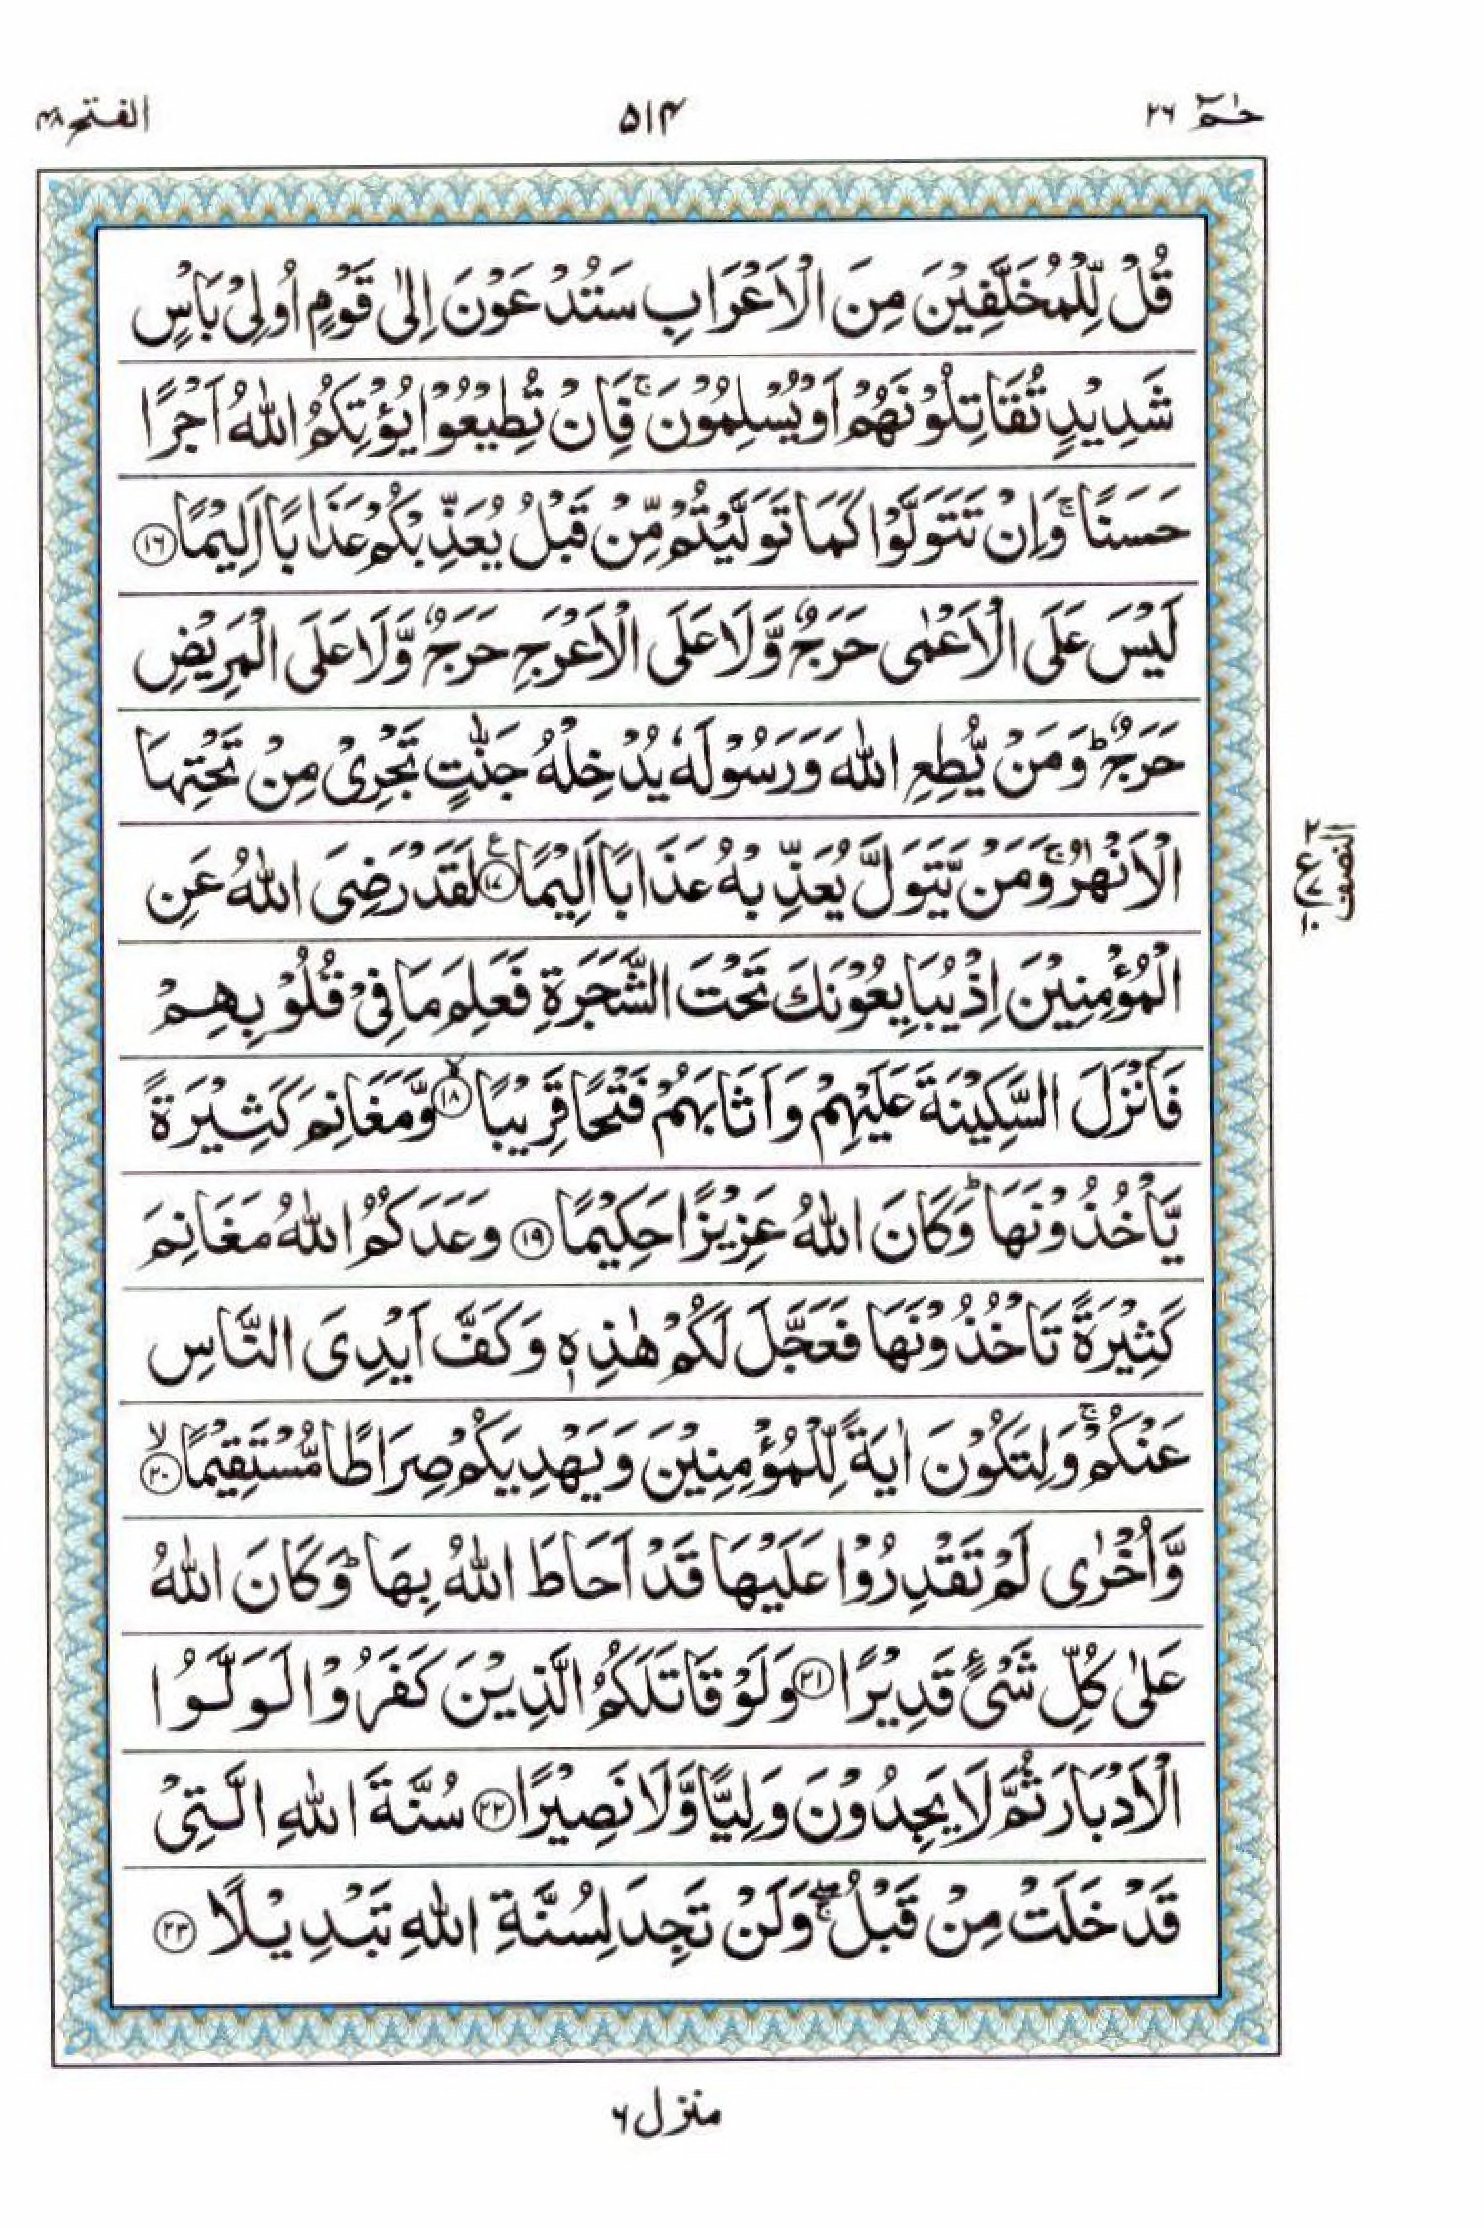 حٰمٓ ٢٦
٥١٤
الفتح ٤٨
قُلْ لِّلْمُخَلَّفِيْنَ مِنَ الْاَعْرَابِ سَتُدْعَوْنَ اِلٰى قَوْمٍ اُولِيْ بَاْسٍ
شَدِيْدٍ تُقَاتِلُوْنَهُمْ اَوْ يُسْلِمُوْنَ ۚ فَاِنْ تُطِيْعُوْا يُؤْتِكُمُ اللّٰهُ اَجْرًا
حَسَنًا ۚ وَاِنْ تَتَوَلَّوْا كَمَا تَوَلَّيْتُمْ مِّنْ قَبْلُ يُعَذِّبْكُمْ عَذَابًا اَلِيْمًا ١٦
لَيْسَ عَلَى الْاَعْمٰى حَرَجٌ وَّلَا عَلَى الْاَعْرَجِ حَرَجٌ وَّلَا عَلَى الْمَرِيْضِ
حَرَجٌ ؕ وَمَنْ يُّطِعِ اللّٰهَ وَرَسُوْلَهٗ يُدْخِلْهُ جَنّٰتٍ تَجْرِيْ مِنْ تَحْتِهَا
الْاَنْهٰرُ ۚ وَمَنْ يَّتَوَلَّ يُعَذِّبْهُ عَذَابًا اَلِيْمًا ١٧ ع لَقَدْ رَضِيَ اللّٰهُ عَنِ
الْمُؤْمِنِيْنَ اِذْ يُبَايِعُوْنَكَ تَحْتَ الشَّجَرَةِ فَعَلِمَ مَا فِيْ قُلُوْبِهِمْ
فَاَنْزَلَ السَّكِيْنَةَ عَلَيْهِمْ وَاَثَابَهُمْ فَتْحًا قَرِيْبًا ١٨ ۙ وَّمَغَانِمَ كَثِيْرَةً
يَّاْخُذُوْنَهَا ؕ وَكَانَ اللّٰهُ عَزِيْزًا حَكِيْمًا ١٩ وَعَدَكُمُ اللّٰهُ مَغَانِمَ
كَثِيْرَةً تَاْخُذُوْنَهَا فَعَجَّلَ لَكُمْ هٰذِهٖ وَكَفَّ اَيْدِيَ النَّاسِ
عَنْكُمْ ۚ وَلِتَكُوْنَ اٰيَةً لِّلْمُؤْمِنِيْنَ وَيَهْدِيَكُمْ صِرَاطًا مُّسْتَقِيْمًا ٢٠ ۙ
وَّاُخْرٰى لَمْ تَقْدِرُوْا عَلَيْهَا قَدْ اَحَاطَ اللّٰهُ بِهَا ؕ وَكَانَ اللّٰهُ
عَلٰى كُلِّ شَيْءٍ قَدِيْرًا ٢١ وَلَوْ قَاتَلَكُمُ الَّذِيْنَ كَفَرُوْا لَوَلَّوُا
الْاَدْبَارَ ثُمَّ لَا يَجِدُوْنَ وَلِيًّا وَّلَا نَصِيْرًا ٢٢ سُنَّةَ اللّٰهِ الَّتِيْ
قَدْ خَلَتْ مِنْ قَبْلُ ۖۚ وَلَنْ تَجِدَ لِسُنَّةِ اللّٰهِ تَبْدِيْلًا ٢٣
النصف
٢ ع ٧ ١٠
منزل ٦